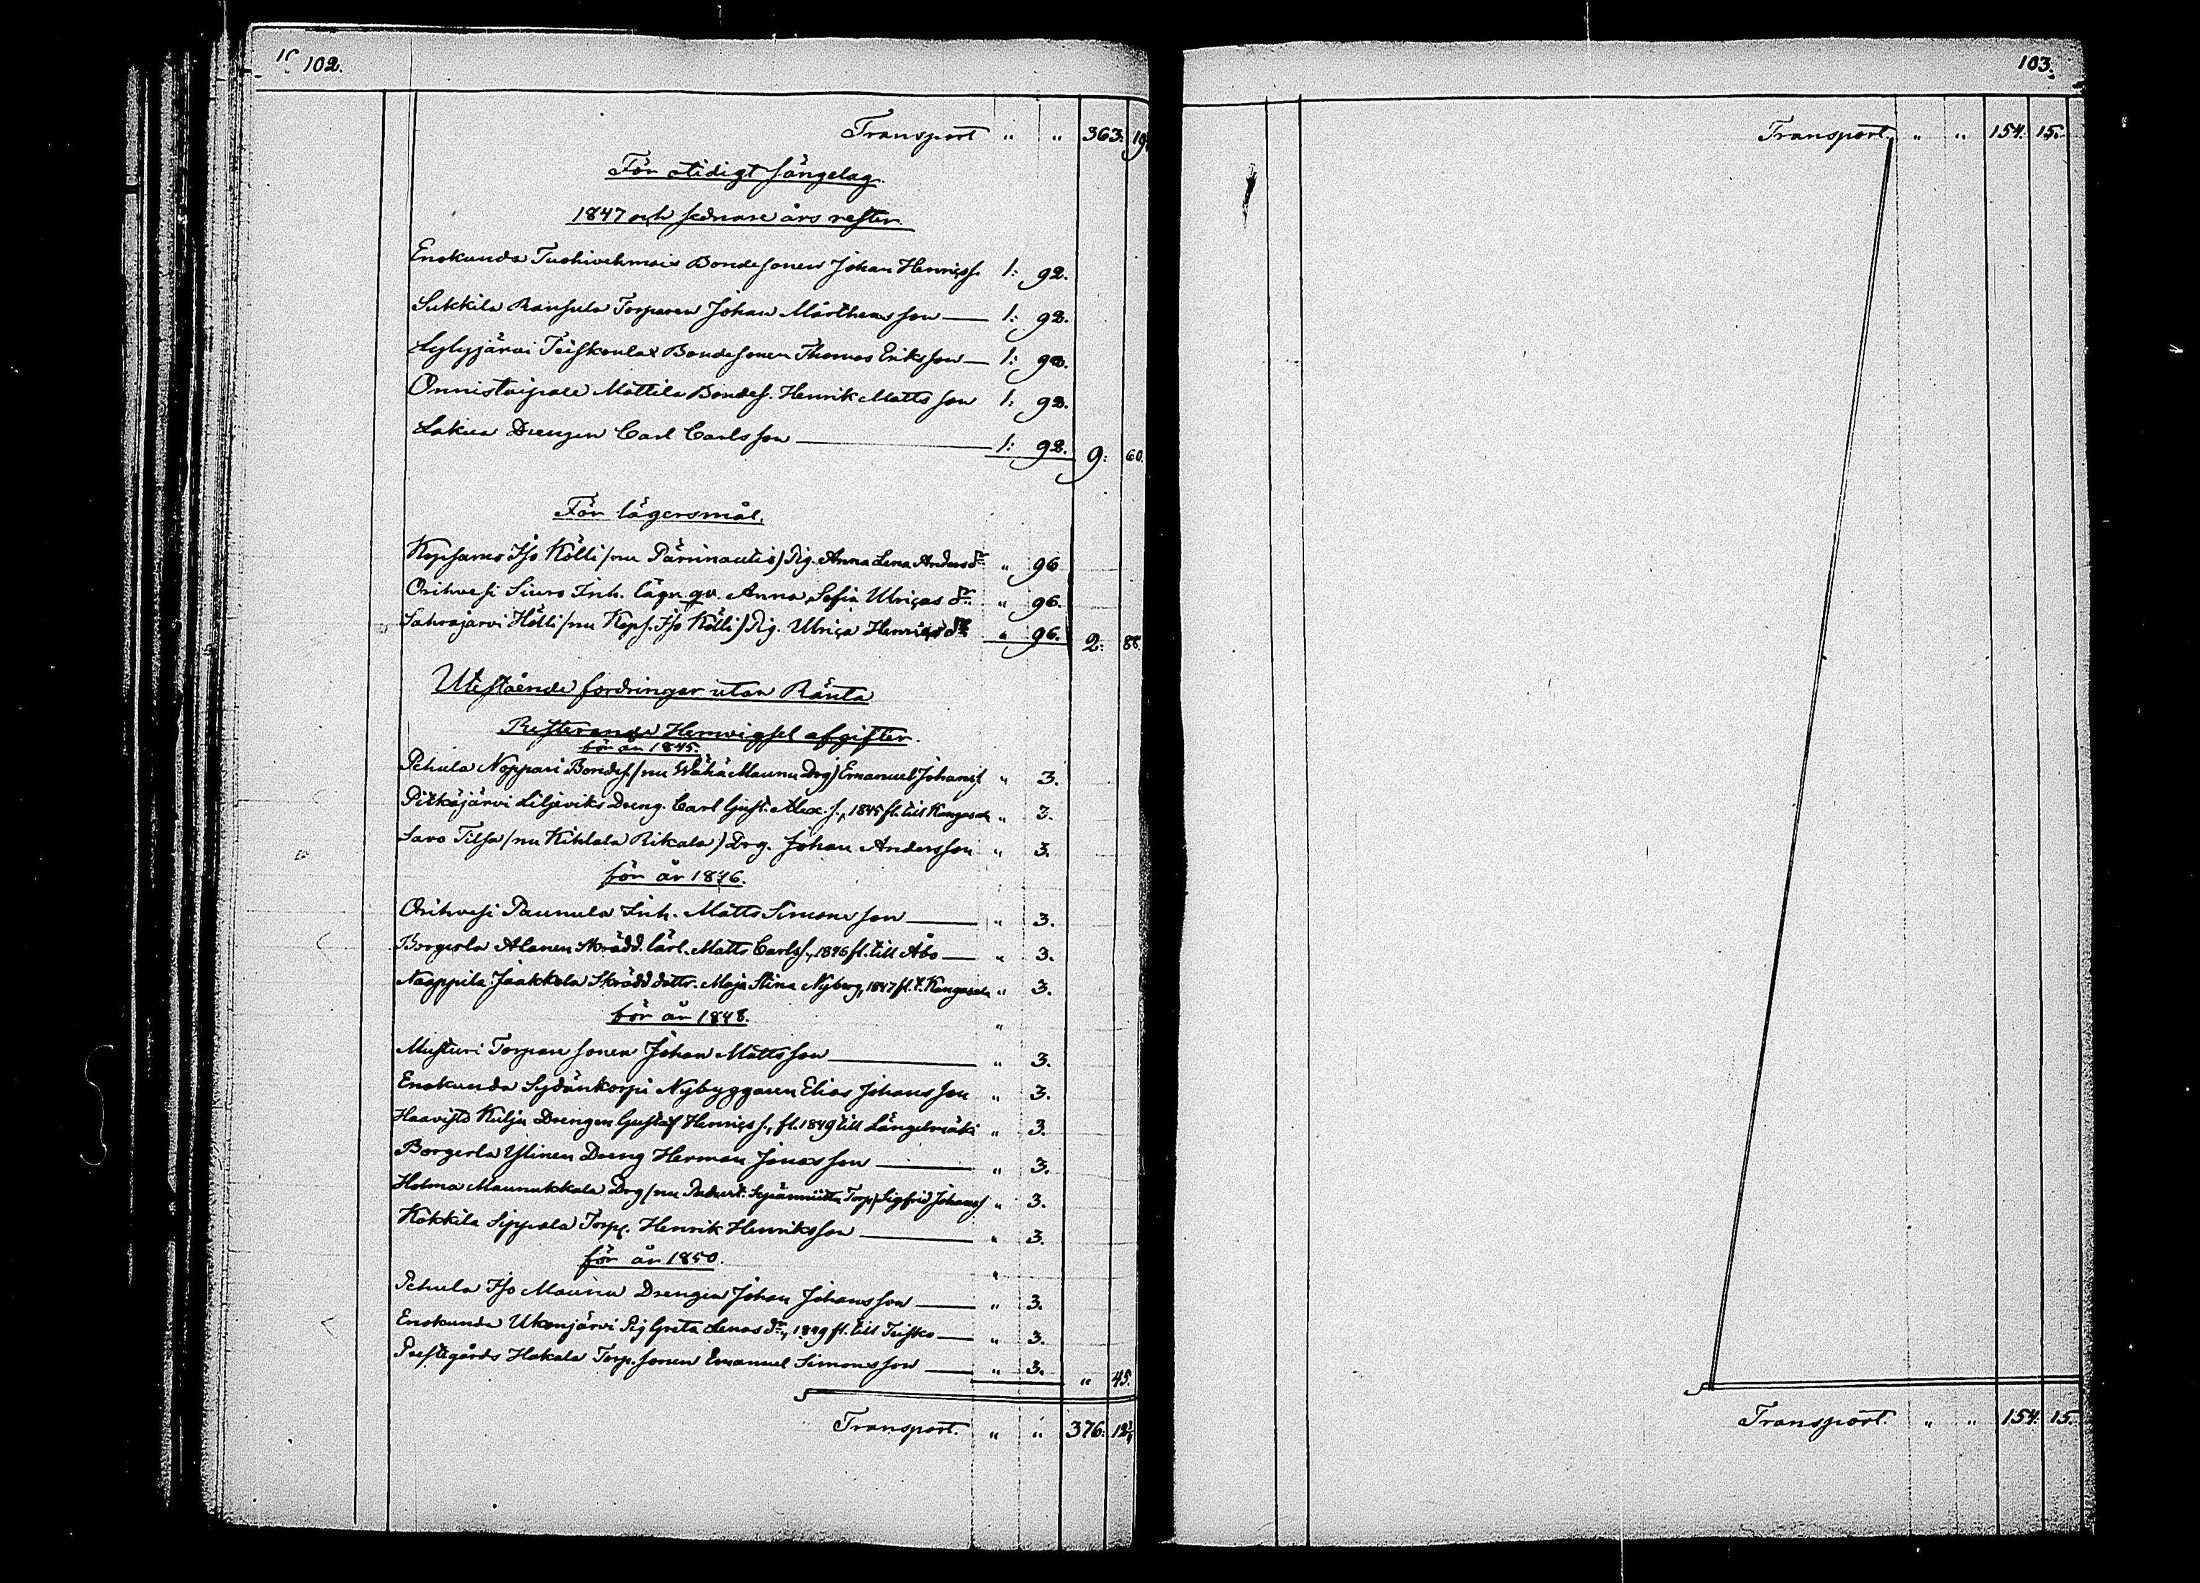 102.
Transport " " 363: 19
För otidigt sängelag.
1847 och sednare års rester
Enokunda Bondesonen Johan Henricss. 1: 92.
Sukkila Torparen Johan Mårthensson — 1: 92.
Lylyjärvi Bondesonen Thomas Eriksson — 1: 92.
Onnistaipale Mattila Bondes. Henrik Mattsson 1: 92.
Lakua Drengen Carl Carlsson — 1: 92. 9: 60.
För lägersmål.
Kopsamo Iso Kölli (nu Pärrinautis) Pig. Anna Lena Andersdr " 96
Orihvesi Siuro Inh. lägr. qv. Anna Sofia Ulricas dr. " 96.
Sahrajärvi Hölli (nu Kops. Iso Kölli) Pig. Ulrica Henricsdr " 96. 2: 88.
Utestående fordringar utan Ränta
Resterande Hemvigsel afgifter.
för år 1845.
Pehula Noppari Bondes. (nu Wähä Maunu Drg) Emanuel Johanss " 3.
Pitkäjärvi Liljeviks Dreng. Carl Gust. Alex. s., 1845 fl. till Kangasala " 3.
Savo Tilsa (nu Kihlala Rikala) Drg. Johan Andersson " 3.
för år 1846.
Orihvesi Paunula Inh. Matts Simonsson — " 3.
Borgerla Alanen Skrädd. lärl. Matts Carlss., 1846 fl. till Åbo — " 3.
Naappila Jaakkola Skrädd dottr. Maja Stina Nyberg, 1847 fl. t. Kangasala " 3.
för år 1848. "
Musturi Torparesonen Johan Mattsson — " 3.
Enokunda Sydänkorpi Nybyggaren Elias Johansson " 3.
Haavisto Kulju Drengen Gustaf Henricss., fl. 1849 till Längelmäki " 3.
Borgerla Ylinen Dreng Herman Jonasson — " 3.
Holma Maunukkala Drg (nu Torp) Sigfrid Johanss " 3.
Kokkila Sippola Torp. Henrik Henriksson — " 3.
för år 1850. "
Pehula Iso Maunu Drengen Johan Johansson — " 3.
Enokunda Ukonjärvi Pig Greta Lenas dr, 1849 fl. till Teisko — " 3.
Prestegårds Hakala Torp. sonen Emanuel Simonsson — " 3. " 45.
Transport. " " 376: 12¾
103.
Transport. " " 154. 15.
Transport. " " 154. 15.